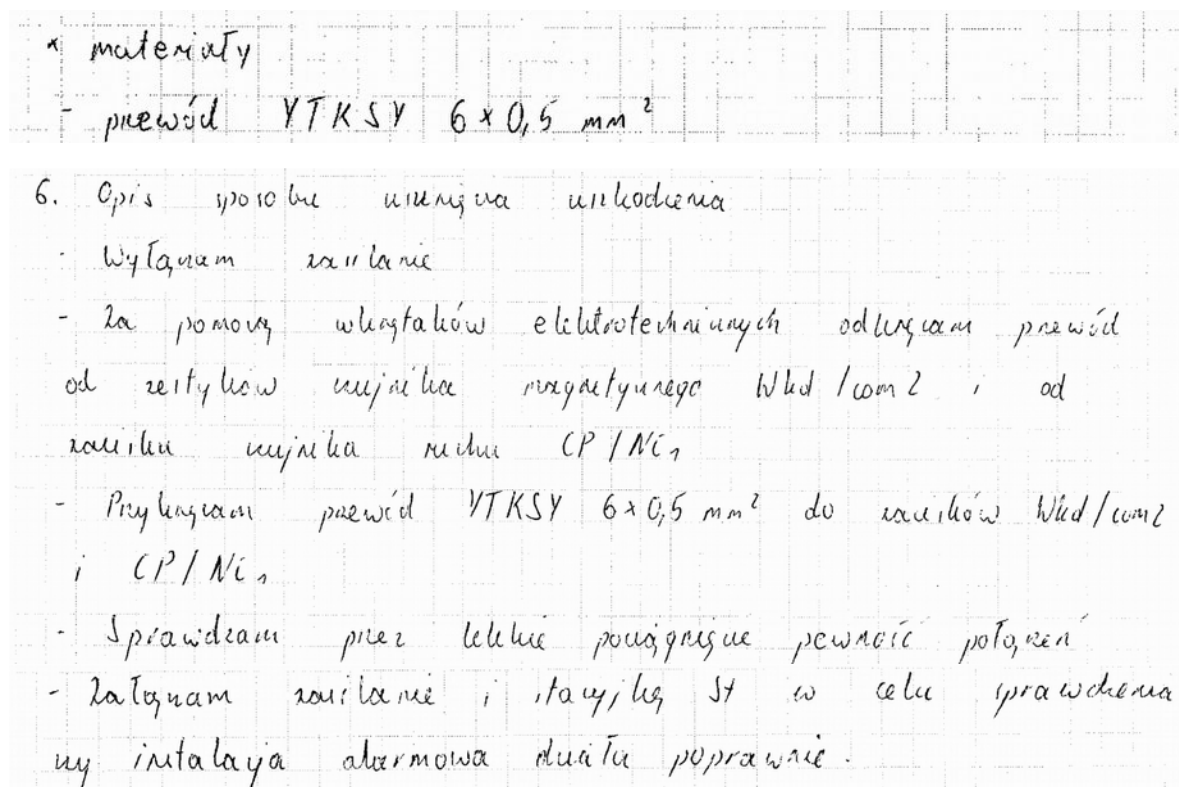 * materiały
- przewód YTKSY 6 x 0,5 mm²
6. Opis sposobu usunięcia uszkodzenia
- Wyłączam zasilanie
- Za pomocą wkrętaków elektrotechnicznych odkręcam przewód
od zestyków czujnika magnetycznego Wkd/com2 i od
zacisku czujnika ruchu CP/NC1
- Przykręcam przewód YTKSY 6 x 0,5 mm² do zacisków Wkd/com2
i CP/NC1
- Sprawdzam przez lekkie pociągnięcie pewność połączeń
- Załączam zasilanie i stacyjkę St w celu sprawdzenia
czy intalacja alarmowa działa poprawnie.